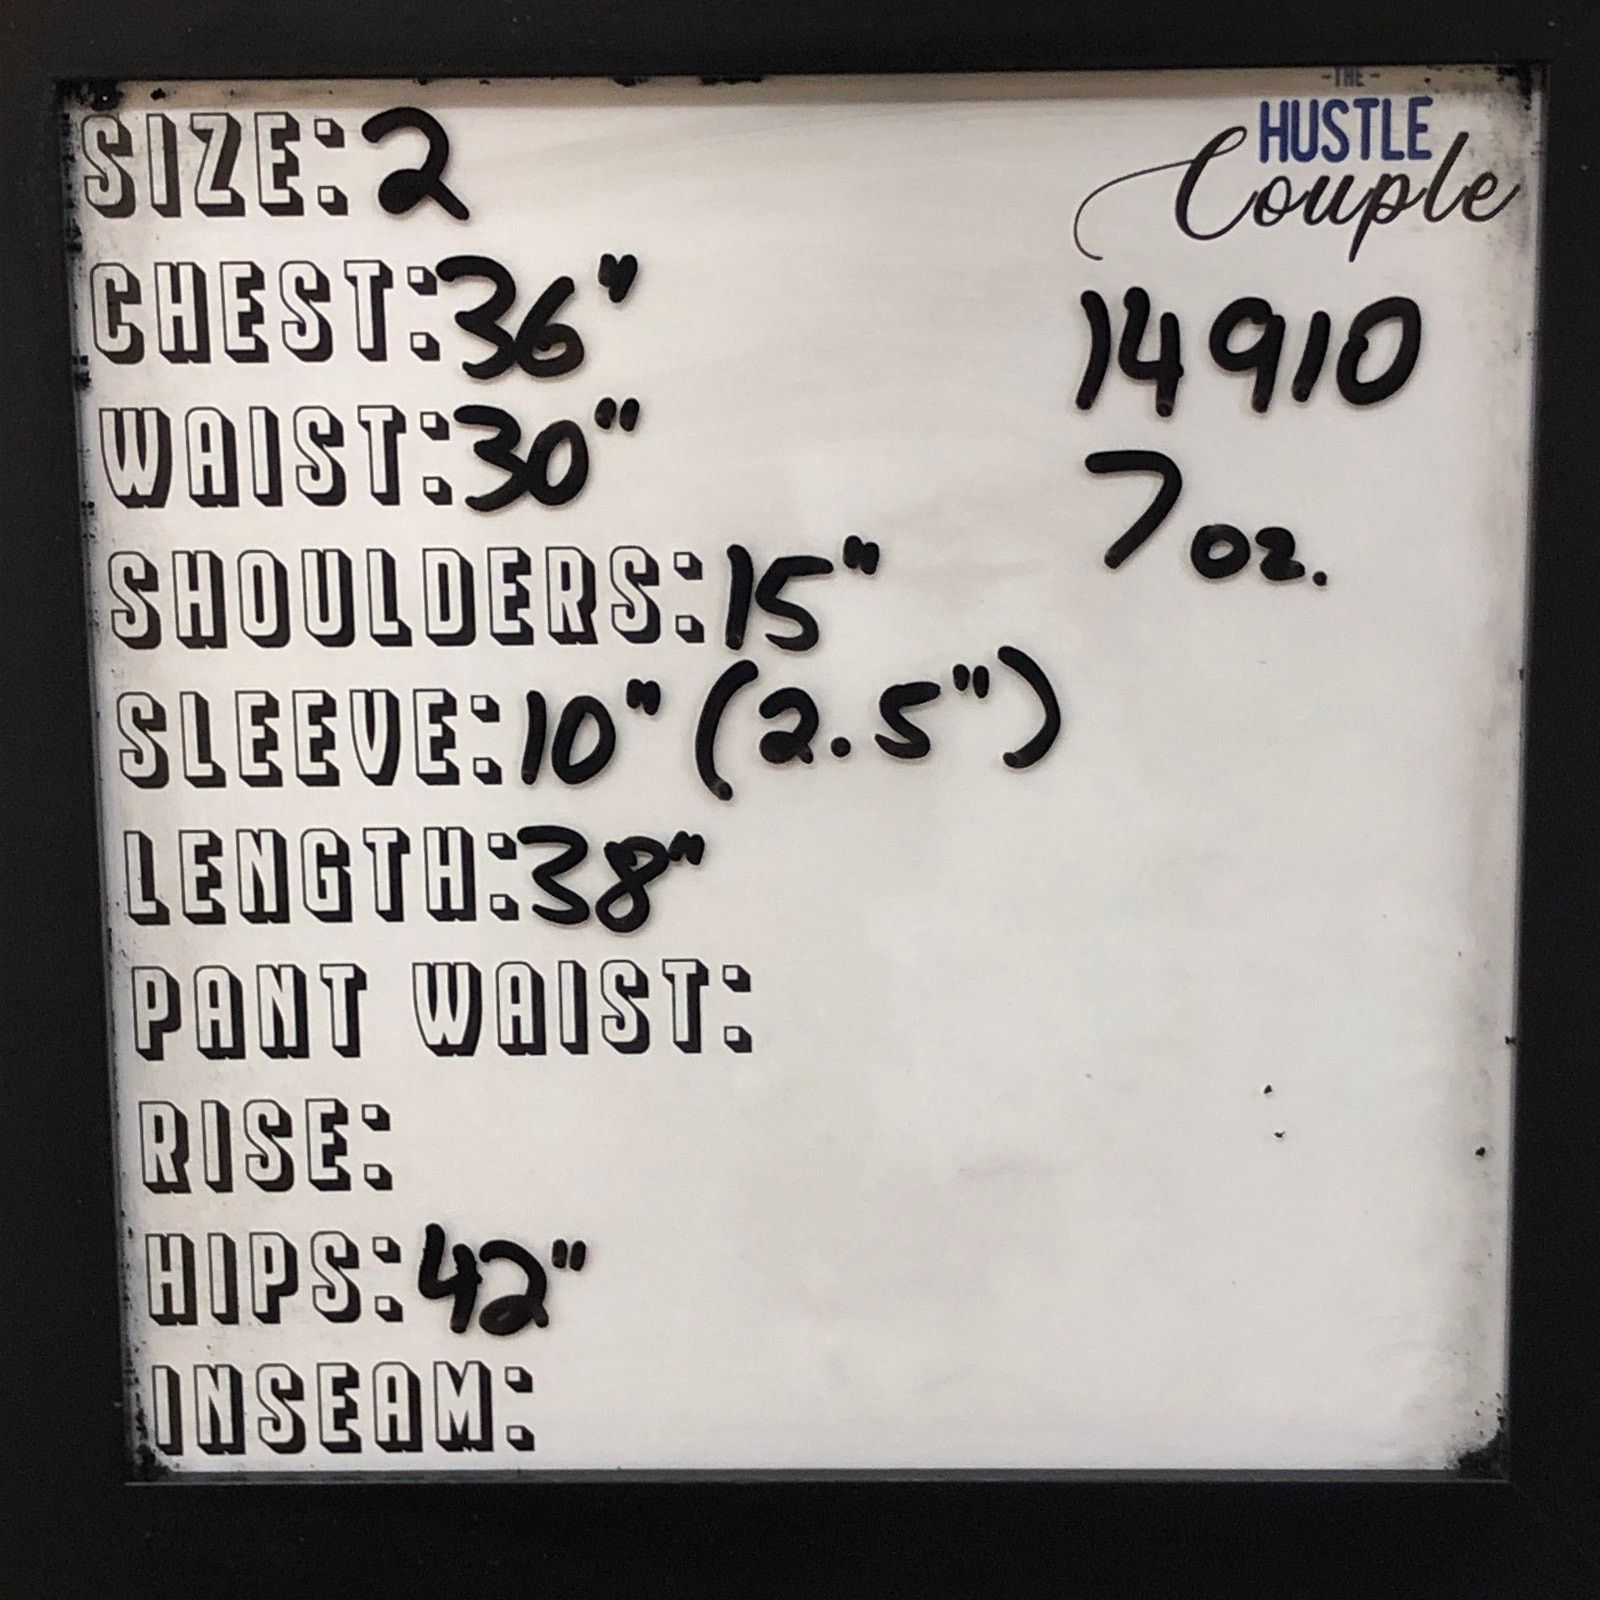 SIZE: 2
CHEST: 36"
WAIST: 30"
SHOULDERS: 15"
SLEEVE: 10" (2.5")
LENGTH: 38"
PANT WAIST:
RISE:
HIPS: 42"
INSEAM:
-THE-
HUSTLE
Couple
14910
7 oz.